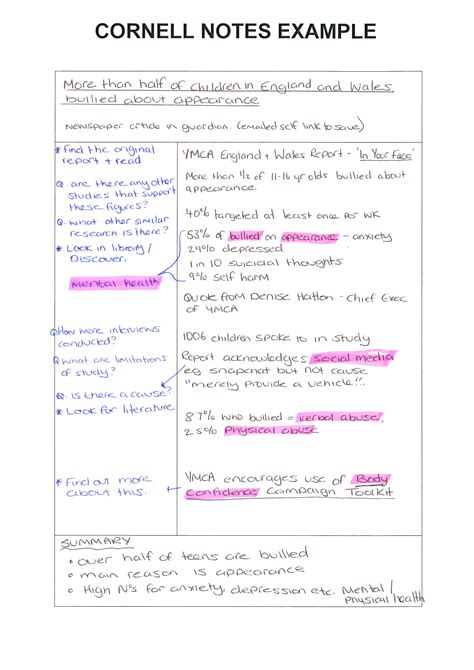 CORNELL NOTES EXAMPLE
More than half of children in England and Wales
bullied about appearance
Newspaper article in guardian. (emailed self link to save)
* Find the original
report + read
Q. are there any other
studies that support
these figures?
Q. what other similar
research is there?
* Look in library /
Discover.
Mental health
Q How were interviews
conducted?
Q What are limitations
of study?
Q. is there a cause?
* Look for literature
* Find out more
about this.
YMCA England + Wales Report - 'In Your Face'
More than 1/2 of 11-16 yr olds bullied about
appearance.
40% targeted at least once per wk
53% of bullied on appearance - anxiety
29% depressed
1 in 10 suicidal thoughts
9% self harm
Quote from Denise Hatton - Chief Exec
of YMCA
1006 children spoke to in study
Report acknowledges social media
eg. snapchat but not cause
"merely provide a vehicle!!.
87% who bullied = verbal abuse,
25% Physical abuse
YMCA encourages use of Body
Confidence Campaign Toolkit
SUMMARY
• over half of teens are bullied
• main reason is appearance
• High N°s for anxiety, depression etc. Mental /
Physical health